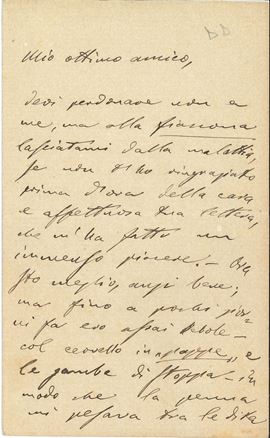 DD
Mio ottimo amico,
devi perdonare non a
me, ma alla fiaccona
lasciatami dalla malattia,
se non t'ho ringraziato
prima d'ora della cara
e affettuosa tua lettera,
che m'ha fatto un
immenso piacere. — Ora
sto meglio, anzi bene;
ma fino a pochi gior-
ni fa ero assai debole —
col cervello in pappa, e
le gambe di stoppa — in
modo che la penna
mi pesava tra le dita